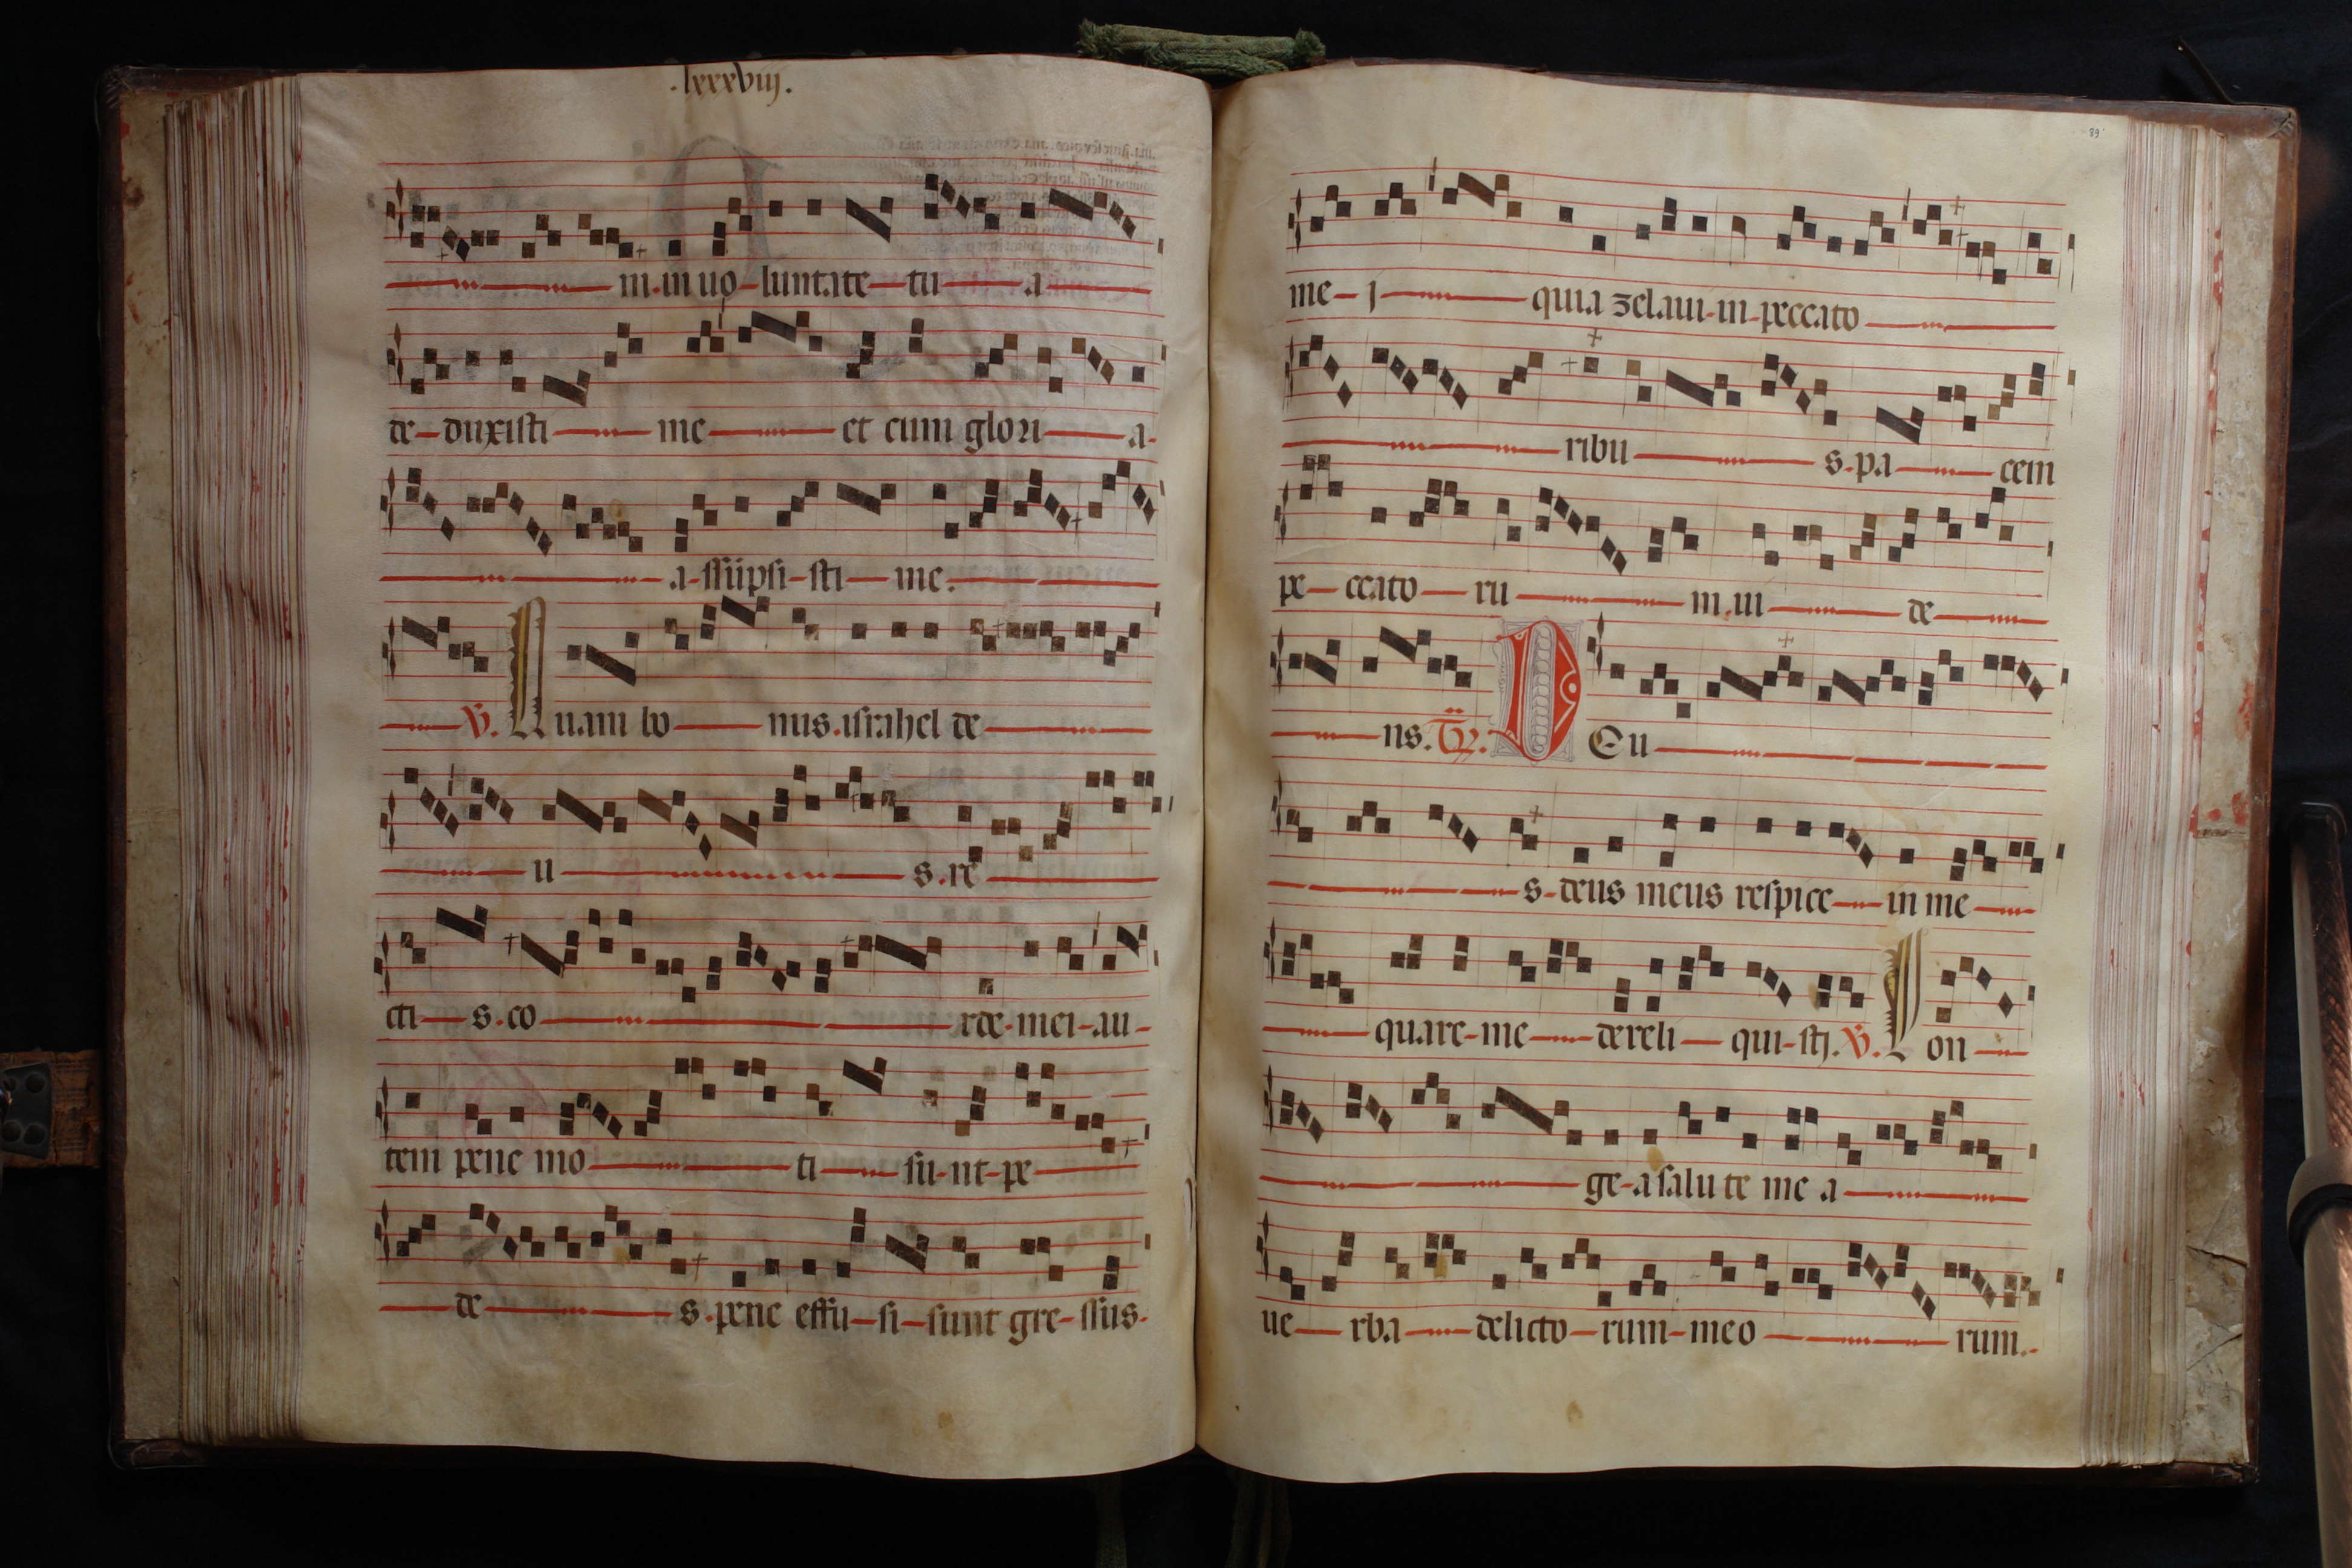 .lxxxviij.
m.in uo luntate tu a
de duxisti me et cum glori a
a ssūpsi sti me.
V. Quam bo nus.israhel de
u s.re
cti s.co rde.mei au
tem pene mo ti su nt pe
de s.pene effu si sunt gre ssus.
89
me j quia zelaui in peccato
ribu s.pa cem
pe ccato ru m.ui de
ns. Tr. D Eu
s deus meus respice in me
quare me dereli qui stj. V. Lon
ge a salu te me a
ue rba delicto rum meo rum.